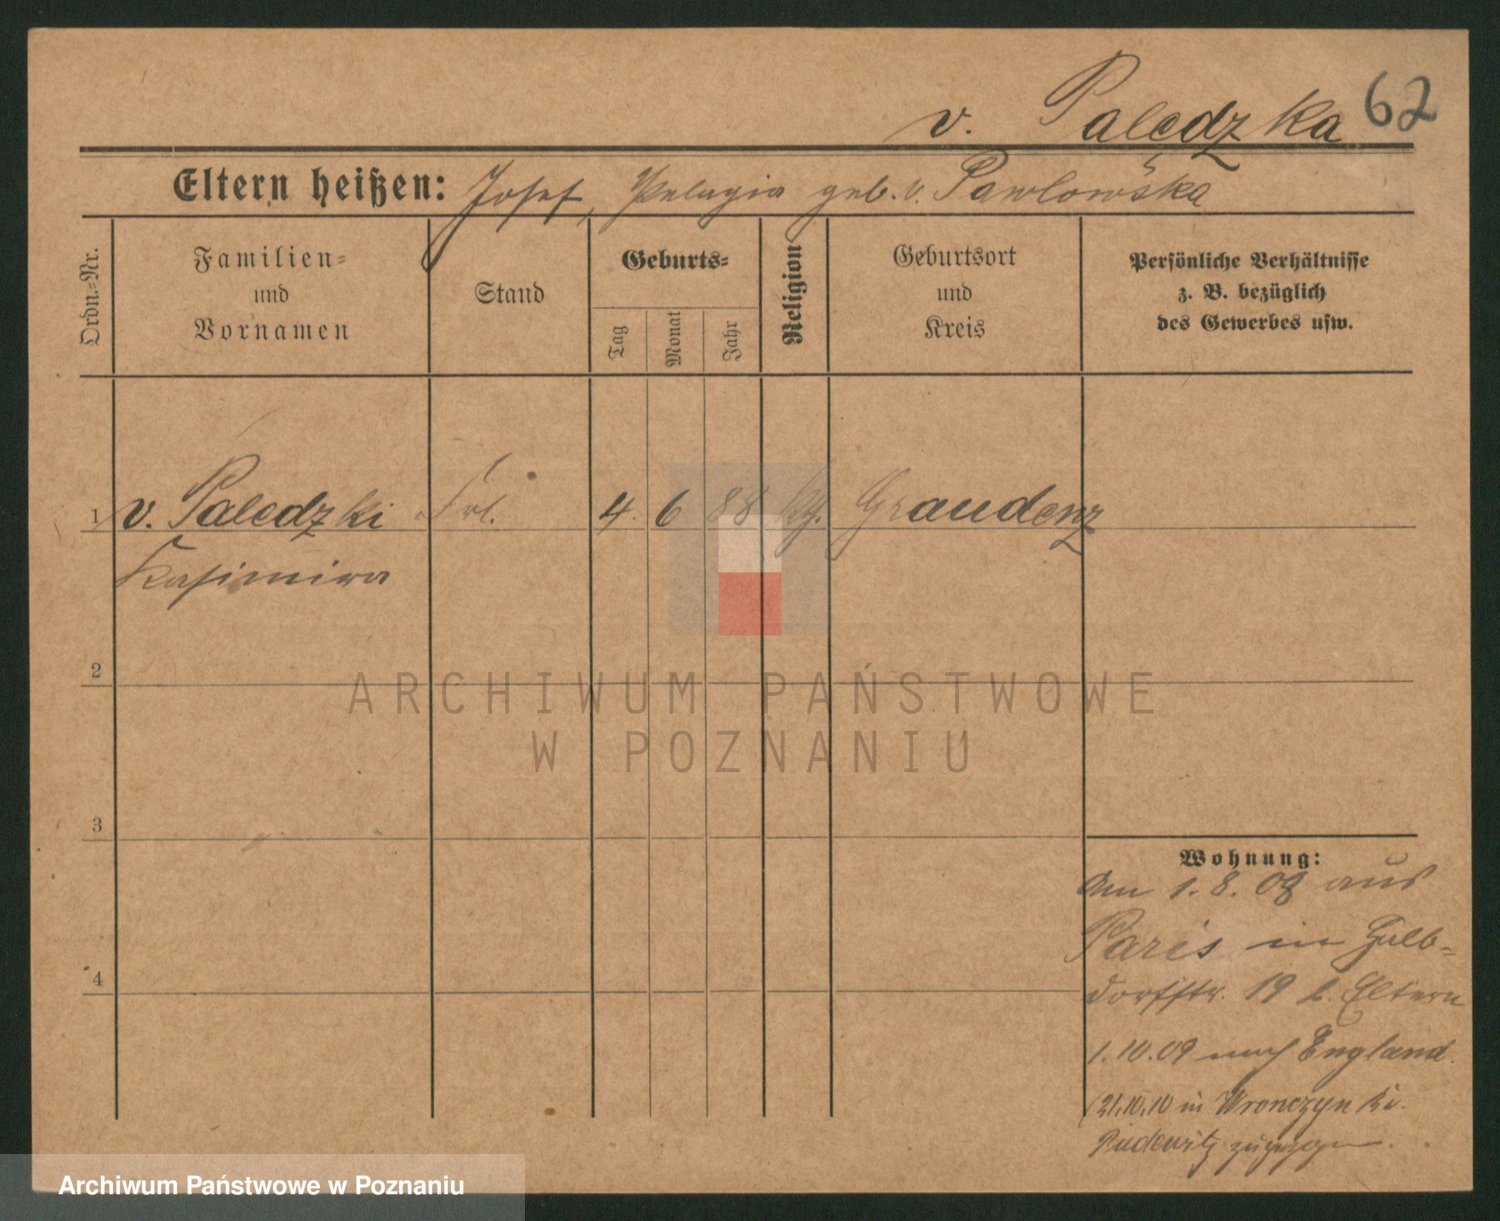 v. Palędzka 62
Eltern heißen: Josef, Pelagia geb. v. Pawlowska
Ordn.-Nr.
Familien-
und
Vornamen
Stand
Geburts-
Tag
Monat
Jahr
Religion
Geburtsort
und
Kreis
Persönliche Verhältnisse
z. B. bezüglich
des Gewerbes usw.
1 v. Paledzki Frl. 4. 6 88 kth. Graudenz
Kasimira
2
3
4
Wohnung:
Am 1.8.08 aus
Paris in
dorfstr. 19 b. Eltern
1.10.09 nach England.
21.10.10 in Wronczyn Kr.
Pudewitz zugezogen.
ARCHIWUM PAŃSTWOWE
W POZNANIU
Archiwum Państwowe w Poznaniu